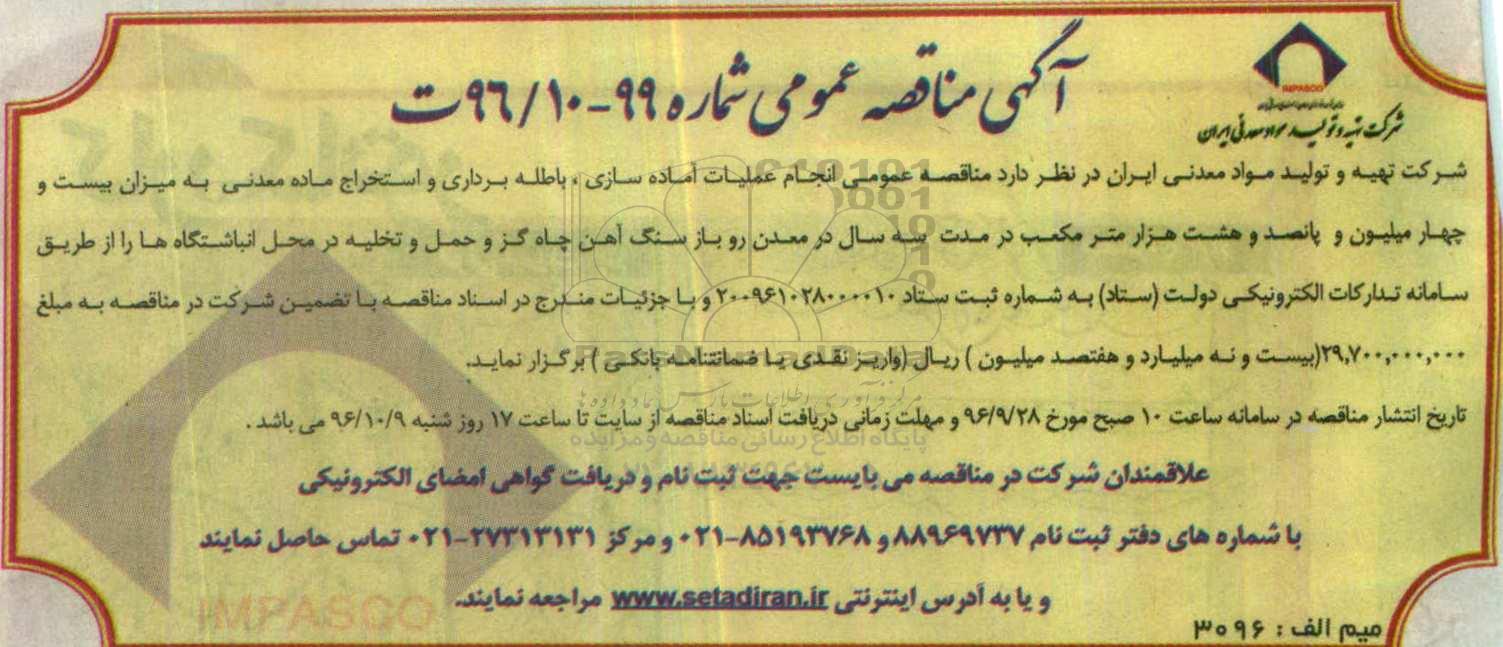 آگهی مناقصه عمومی شماره ۹۹-۹۶/۱۰ت
IMPASCO
شرکت تهیه و تولید مواد معدنی ایران
شرکت تهیه و تولید مواد معدنی ایران در نظر دارد مناقصه عمومی انجام عملیات آماده سازی ، باطله برداری و استخراج ماده معدنی به میزان بیست و
چهار میلیون و پانصد و هشت هزار متر مکعب در مدت سه سال در معدن رو باز سنگ آهن چاه گز و حمل و تخلیه در محل انباشتگاه ها را از طریق
سامانه تدارکات الکترونیکی دولت (ستاد) به شماره ثبت ستاد ۲۰۰۹۶۱۰۲۸۰۰۰۰۱۰ و با جزئیات مندرج در اسناد مناقصه با تضمین شرکت در مناقصه به مبلغ
۲۹,۷۰۰,۰۰۰,۰۰۰(بیست و نه میلیارد و هفتصد میلیون ) ریال (واریز نقدی یا ضمانتنامه بانکی ) برگزار نماید.
تاریخ انتشار مناقصه در سامانه ساعت ۱۰ صبح مورخ ۹۶/۹/۲۸ و مهلت زمانی دریافت اسناد مناقصه از سایت تا ساعت ۱۷ روز شنبه ۹۶/۱۰/۹ می باشد .
پایگاه اطلاع رسانی مناقصه و مزایده
علاقمندان شرکت در مناقصه می بایست جهت ثبت نام و دریافت گواهی امضای الکترونیکی
با شماره های دفتر ثبت نام ۸۸۹۶۹۷۳۷ و ۸۵۱۹۳۷۶۸-۰۲۱ و مرکز ۲۷۳۱۳۱۳۱-۰۲۱ تماس حاصل نمایند
و یا به آدرس اینترنتی www.setadiran.ir مراجعه نمایند.
IMPASCO
میم الف : ۳۰۹۶